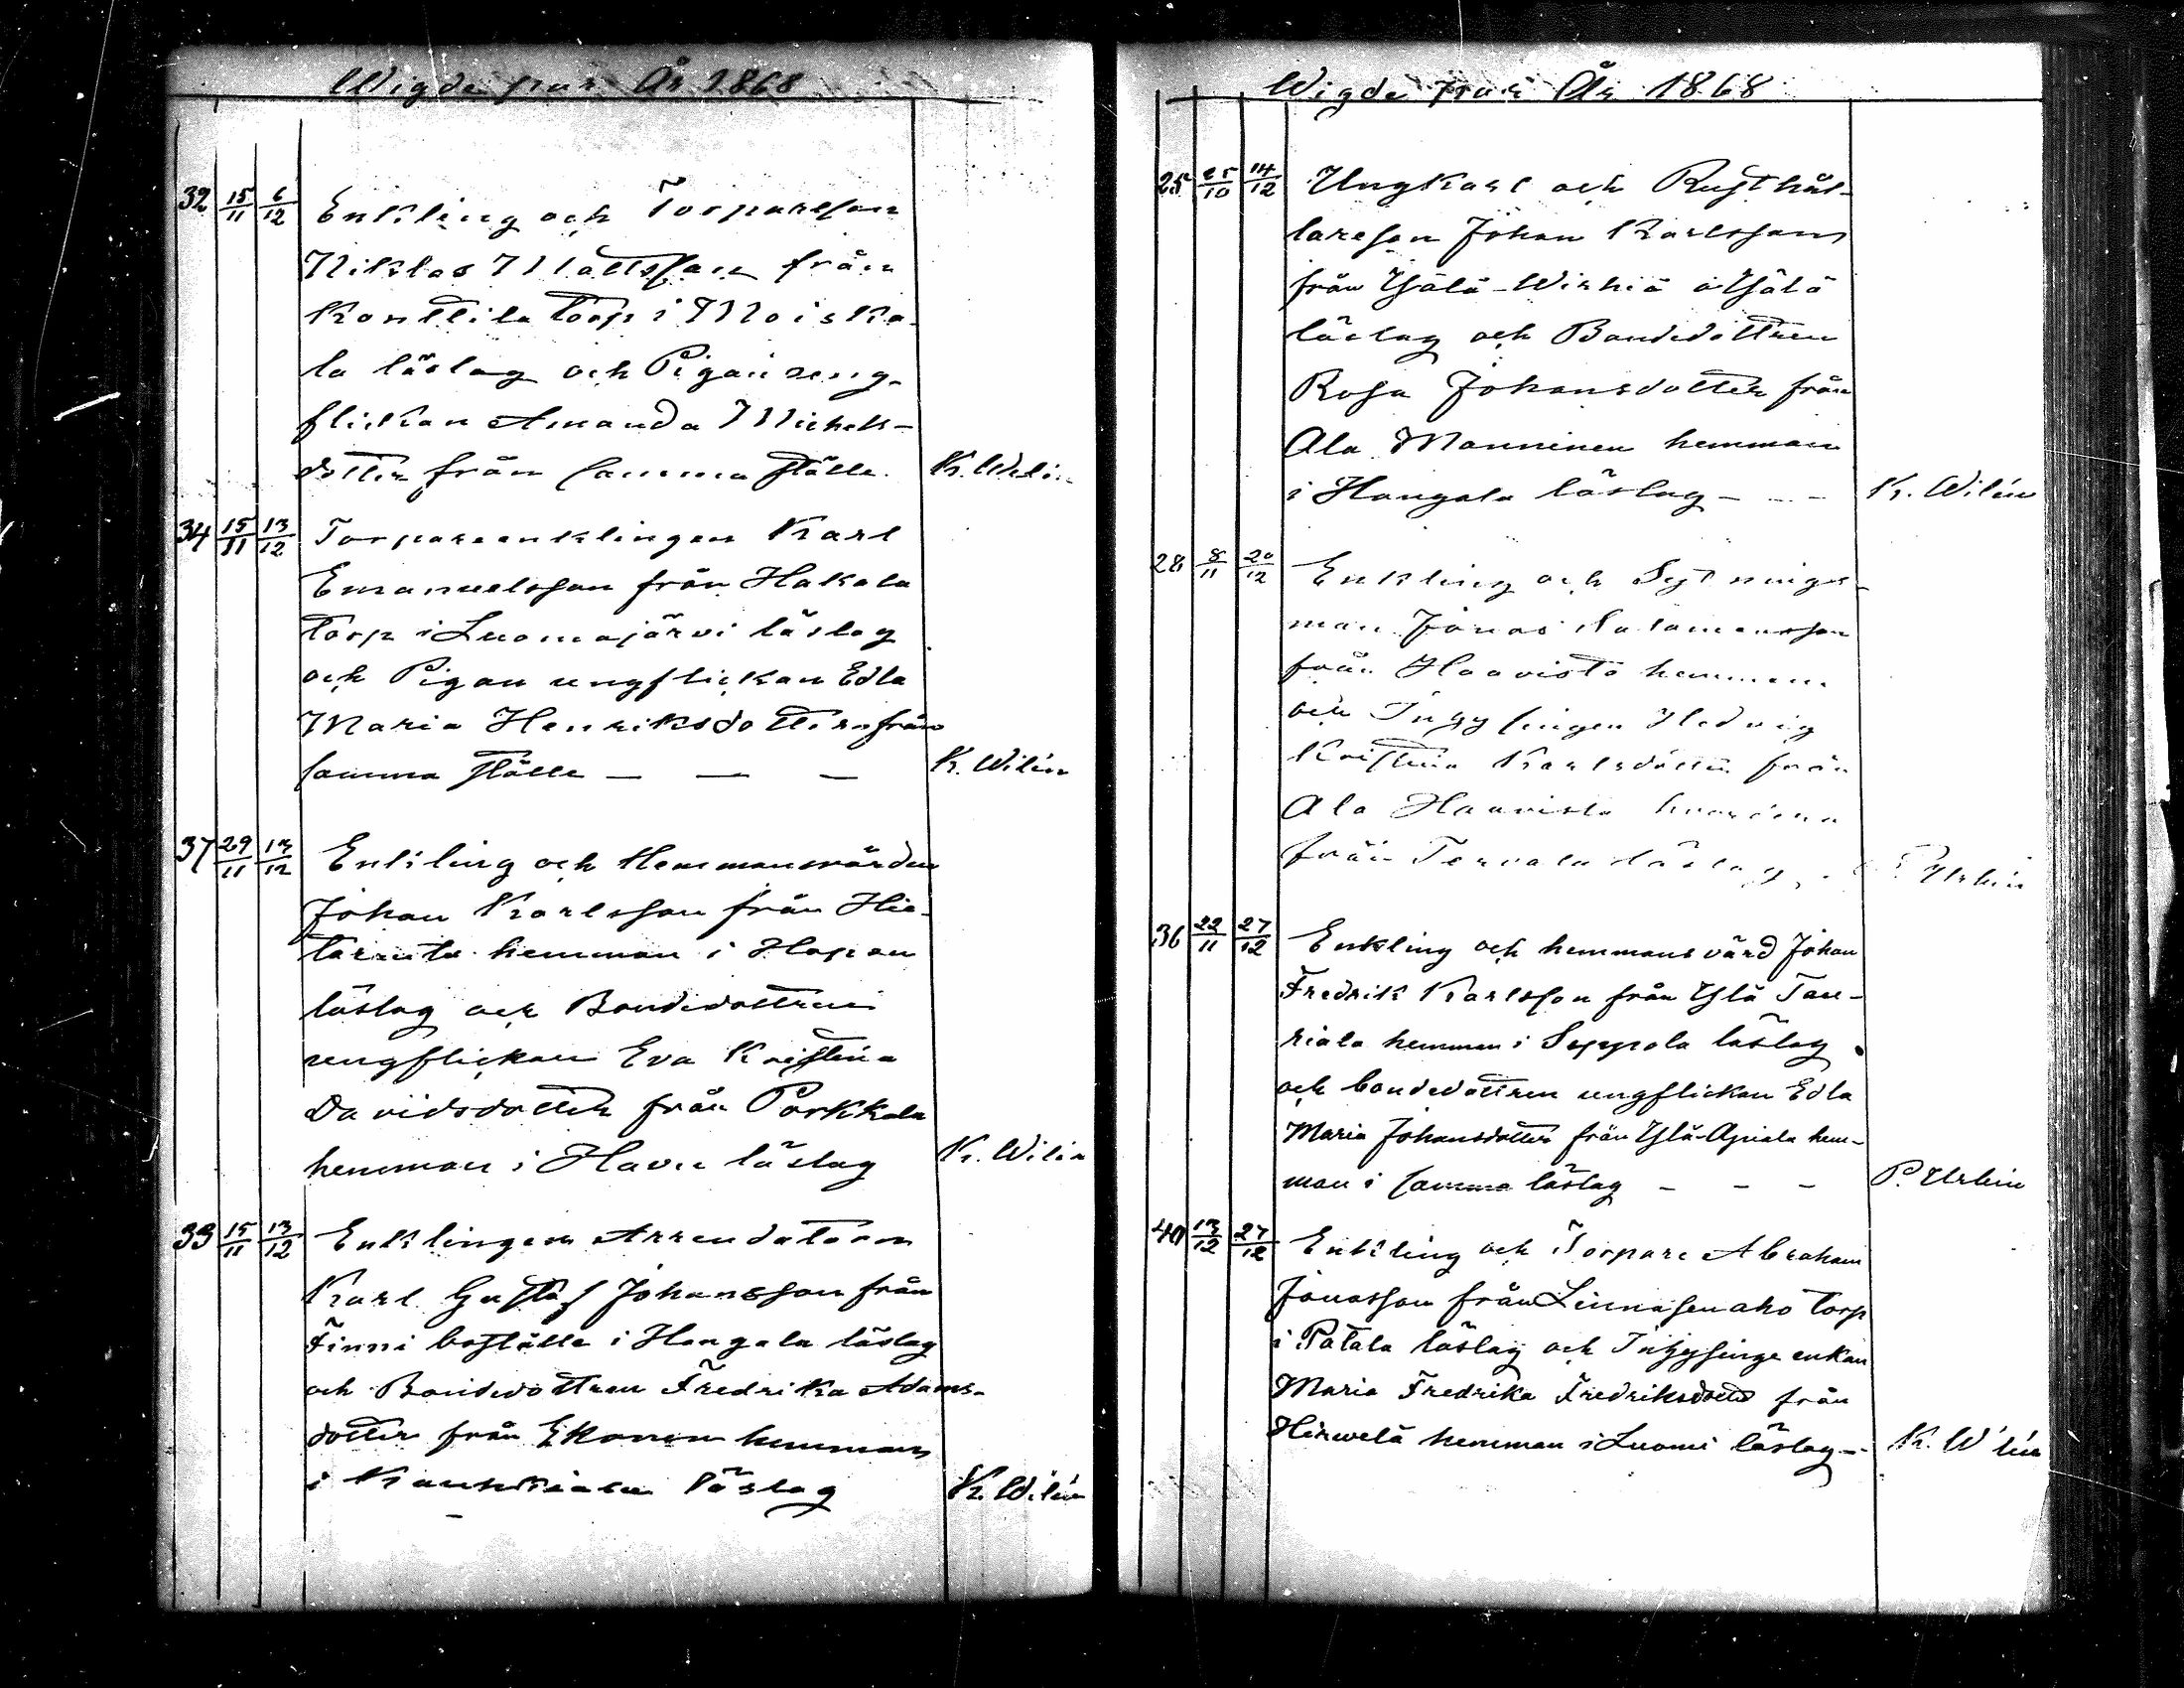 Wigde par År 1868
32 15/11 6/12 Enkling och Torparesson
Niklas Mattsson från
Konttila torp i Moiska-
la läslag och Pigan ung-
flickan Amanda Michels-
dotter från samma ställe. K. Wilén
34 15/11 13/12 Torpareenklingen Karl
Emanuelsson från Hakala
torp i Luomajärvi läslag
och Pigan ungflickan Edla
Maria Henriksdotter från
samma ställe — — — K. Wilén
37 29/11 13/12 Enkling och Hemmansvärden
Johan Karlsson från Hie-
taranta hemman i Hapon
läslag och Bondedottren
ungflickan Eva Kristina
Davidsdotter från Porkkala
hemman i Havu läslag K. Wilén
33 15/11 13/12 Enklingen Arrendatoren
Karl Gustaf Johansson från
Finni boställe i Hangala läslag
och Bondedottren Fredrika Adams-
dotter från Ekonen hemman
i läslag K. Wilén
Wigde par År 1868
25 25/10 14/12 Ungkarl och Rusthål-
lareson Johan Karlsson
från Yjälä-Wirhiä i Yjälä
läslag och Bondedottren
Rosa Johansdotter från
Ala Manninen hemman
i Hangala läslag - - - K. Wilén
28 8/11 20/12 Enkling och Sytnings-
man Jonas Salamonsson
från Haavisto hemman
och Inhysingen Hedvig
Kristina Karlsdotter från
Ala Haavisto hemman
från Tervala läslag, P. Urhin
36 22/11 27/12 Enkling och hemmans värd Johan
Fredrik Karlsson från Ylä Tau-
riala hemman i Seppola läslag
och bondedottren ungflickan Edla
Maria Johansdotter från Ylä-Apiala hem-
man i samma läslag - - - P. Urhin
40 13/12 27/12 Enkling och Torpare Abraham
Jonasson från Linnasenaho torp
i Patala läslag och Inhysinge enkan
Maria Fredrika Fredriksdotter från
Hirwelä hemman i Luomi läslag - K. Wilén